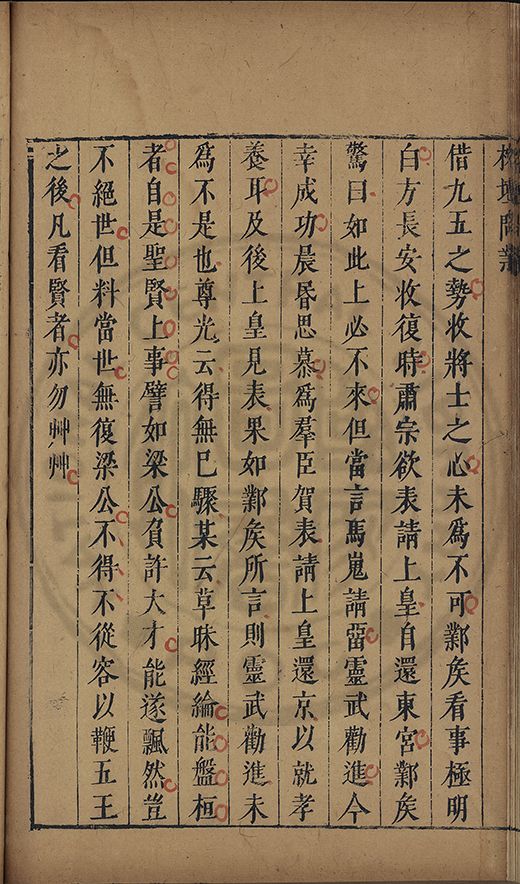 榕壇問業
借九五之勢收將士之心未爲不可鄴矦看事極明
白方長安收復時肅宗欲表請上皇自還東宮鄴矦
驚曰如此上必不來但當言馬嵬請畱靈武勸進今
幸成功晨昏思慕爲羣臣賀表請上皇還京以就孝
養耳及後上皇見表果如鄴矦所言則靈武勸進未
爲不是也尊光云得無已驟某云草昧經綸能盤桓
者自是聖賢上事譬如梁公負許大才能遂飄然豈
不絕世但料當世無復梁公不得不從容以鞭五王
之後凡看賢者亦勿艸艸